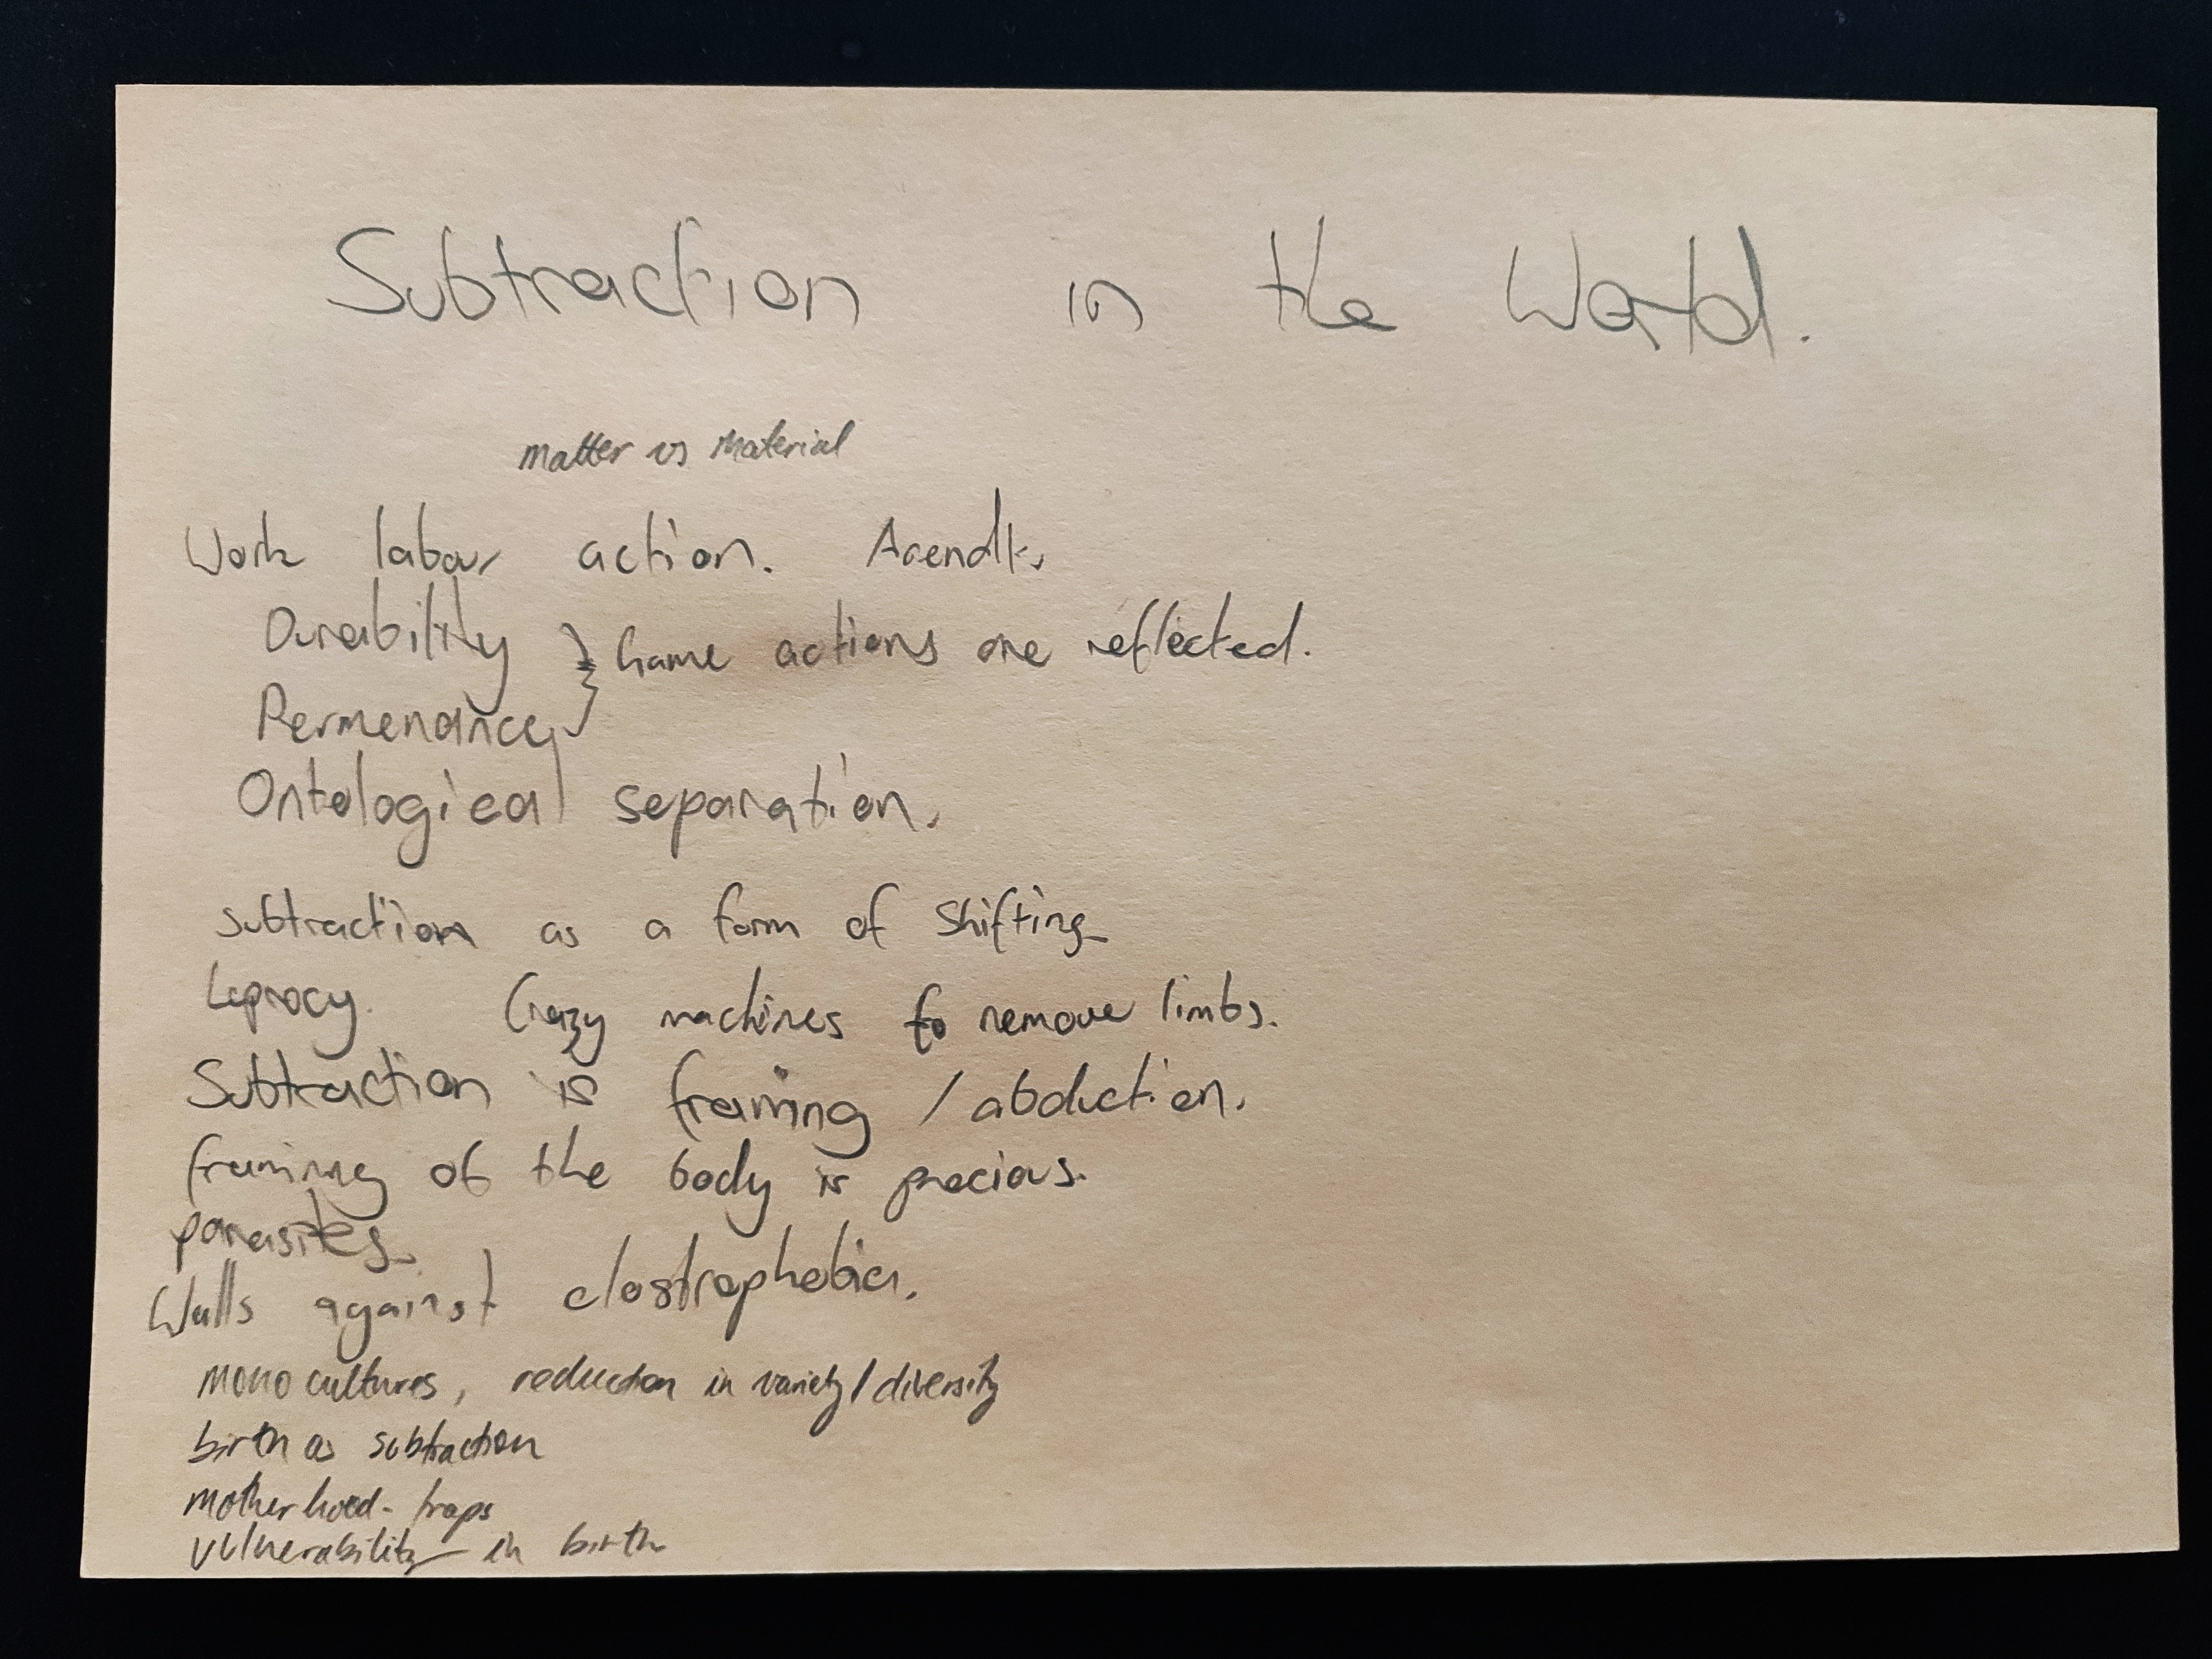 Subtraction in the World.
matter vs Material
Work labour action. Arendt.
Durability
} Game actions are reflected.
Permenance
Ontological separation.
subtraction as a form of Shifting
Leprocy. Crazy machines to remove limbs.
Subtraction is framing / abduction.
framing of the body is precious.
parasites
Walls against clostrophobia.
mono cultures, reduction in variety / diversity
birth as subtraction
motherhood - traps
vulnerability in birth